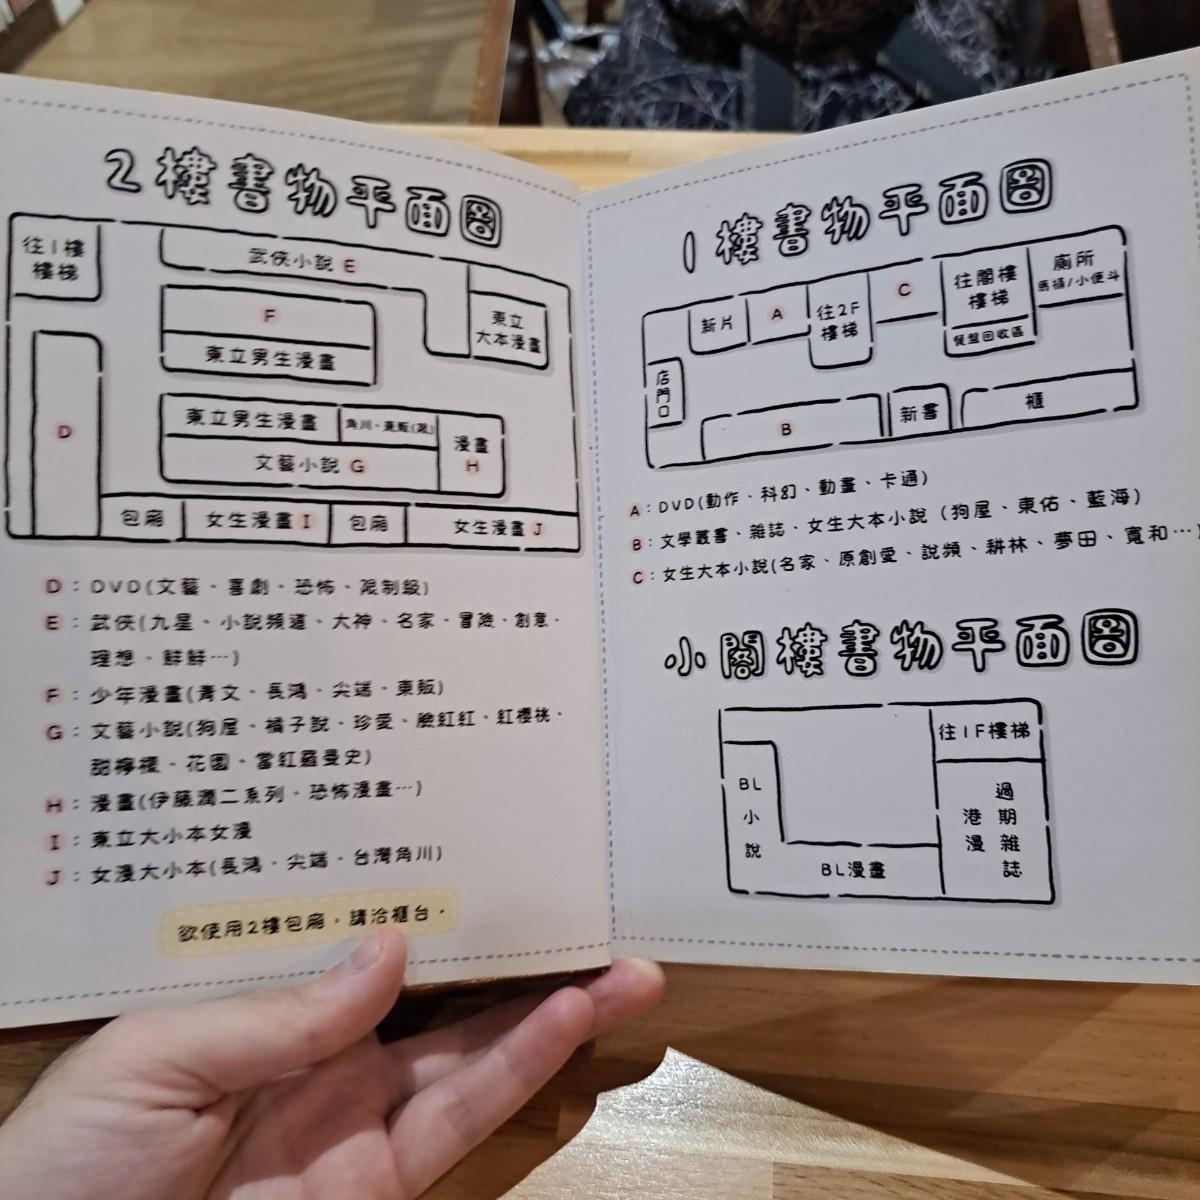 2樓書物平面圖
往1樓
樓梯
武俠小說 E
東立
大本漫畫
F
東立男生漫畫
D
東立男生漫畫
角川、東販(限)
漫畫
H
文藝小說 G
包廂
女生漫畫 I
包廂
女生漫畫 J
D：DVD(文藝、喜劇、恐怖、限制級)
E：武俠(九星、小說頻道、大神、名家、冒險、創意、
理想、鮮鮮…)
F：少年漫畫(青文、長鴻、尖端、東販)
G：文藝小說(狗屋、橘子說、珍愛、臉紅紅、紅櫻桃、
甜檸檬、花園、當紅羅曼史)
H：漫畫(伊藤潤二系列、恐怖漫畫…)
I：東立大小本女漫
J：女漫大小本(長鴻、尖端、台灣角川)
欲使用2樓包廂，請洽櫃台。
1樓書物平面圖
新片
A
往2F
樓梯
C
往閣樓
樓梯
餐盤回收區
廁所
馬桶/小便斗
店門口
B
新書
櫃
A：DVD(動作、科幻、動畫、卡通)
B：文學叢書、雜誌、女生大本小說（狗屋、東佑、藍海）
C：女生大本小說(名家、原創愛、說頻、耕林、夢田、寬和…)
小閣樓書物平面圖
往1F樓梯
BL小說
BL漫畫
過期雜誌
港漫